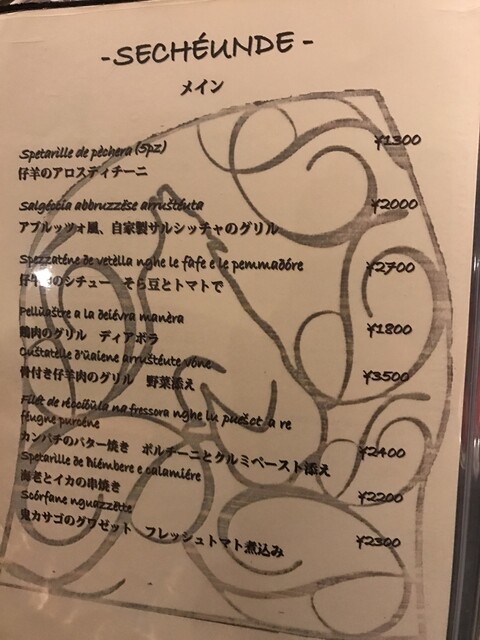 -SECHÉUNDE-
メイン
Spetarille de pêchera (5pz) ¥1300
仔羊のアロスティチーニ
Salgéccia abbruzzêse arruštéuta ¥2000
アブルッツォ風、自家製サルシッチャのグリル
Spezzaténe de vetèlla nghe le fafe e le pemmaðóre ¥2700
仔牛肉のシチュー そら豆とトマトで
Pellůaštre a la ðeiévra manèra ¥1800
鶏肉のグリル ディアボラ
arruštéute vóne
骨付き仔羊肉のグリル 野菜添え ¥3500
Filét de na fressora nghe lu a re
féugne purcéne
カンパチのバター焼き ポルチーニとクルミペースト添え ¥2400
Spetarille de e calamiére
海老とイカの串焼き ¥2200
Scórfane nguazzétte
鬼カサゴのグワゼット フレッシュトマト煮込み ¥2300